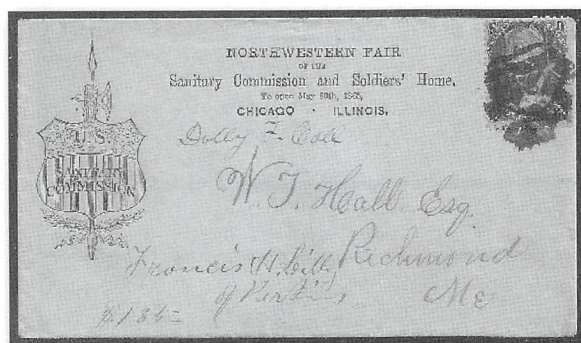 NORTHWESTERN FAIR
OF THE
Sanitary Commission and Soldiers' Home,
To open May 30th, 1865,
CHICAGO · ILLINOIS.
U.S.
SANITARY
COMMISSION
Dolly F. Cole
W. T. Hall Esq.
Richmond
Me
Francis H.
of Perkins